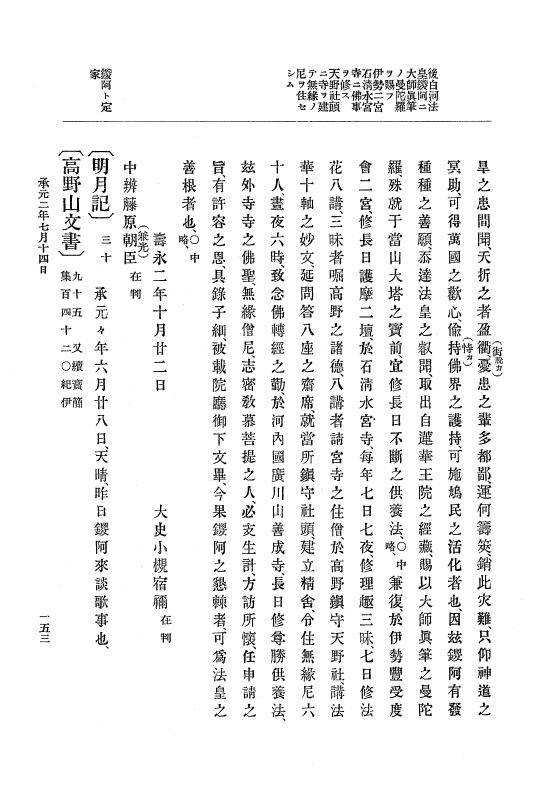 後白河法
皇鑁阿ニ
大師眞筆
ノ曼陀羅
ヲ賜フ
伊勢二宮
石清水宮
寺ニ佛事
ヲ修ス
天野社頭
ニ寺ヲ建
テ無緣ノ
尼ヲ住セ
シム
鑁阿ト定
家
旱之患間聞、夭折之者盈衢、憂患之輩多都鄙、運何籌筴、銷此灾難、只仰神道之
(街脱カ)
冥助、可得萬國之歡心、偸持佛界之護持、可施鳩民之活化者也、因玆鑁阿有發
(恃カ)
種種之善願、忝達法皇之叡聞、取出自蓮華王院之經藏、賜以大師眞筆之曼陀
羅、殊就于當山大塔之寶前、宜修長日不斷之供養法、〇中略、兼復於伊勢豐受度
會二宮修長日護摩二壇、於石清水宮寺每年七日七夜修理趣三昧、七日修法
花八講、三昧者啒高野之諸德、八講者請宮寺之住僧、於高野鎭守天野社、講法
華十軸之妙文、延問答八座之齋席、就當所鎭守社頭、建立精舍、令住無緣尼六
十人、晝夜六時、致念佛轉經之勤、於河內國廣川山善成寺、長日修尊勝供養法、
玆外寺寺之佛聖、無緣僧尼志密敎慕菩提之人、必支生計、方訪所懷、任申請之
旨、有許容之恩、具錄子細、被載院廳御下文畢、今果鑁阿之懇棘者、可爲法皇之
善根者也、〇中略、
壽永二年十月廿二日　大史小槻宿禰在判
中辨藤原朝臣在判
(兼光)
〔明月記〕三十　承元々年六月廿八日、天晴、昨日鑁阿來談歌事也、
〔高野山文書〕九十五　又續寶簡集百四十二〇紀伊
承元二年七月十四日
一五三